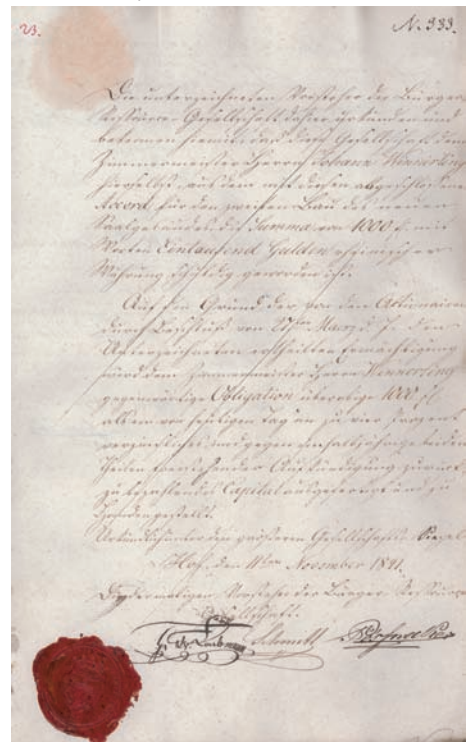 23.
N. 333.
Die unterzeichneten Vorsteher der Bürger
Ressource-Gesellschaft dahier urkunden und
bekennen hiemit, daß diese Gesellschaft dem
Zimmermeister Herrn Johann Wennerling
hierselbst, aus dem mit diesem abgeschlossenen
Accord für den zweiten Bau des neuen
Saalgebäudes die Summa von 1000 f. mit
Worten Eintausend Gulden rheinischer
Währung schuldig geworden ist.
Auf den Grund der von den Actionairen
durch Beschluß vom 27ten d. J. den
Unterzeichneten ertheilten Ermächtigung
wird dem Zimmermeister Herrn Wennerling
gegenwärtige Obligation über obige 1000 fl
als ein von heutigem Tag an zu vier Prozent
verzinsliches und gegen halbjährige beiden
Theilen freistehender Aufkündigung zurück
zu bezahlendes Capital ausgefertigt und zu
Handen gestellt.
Urkundlich unter dem größeren Gesellschafts-Siegel
Hof, den 11ten November 1841.
Die dermaligen Vorsteher der Bürger-Ressource
Gesellschaft.
Schmidt